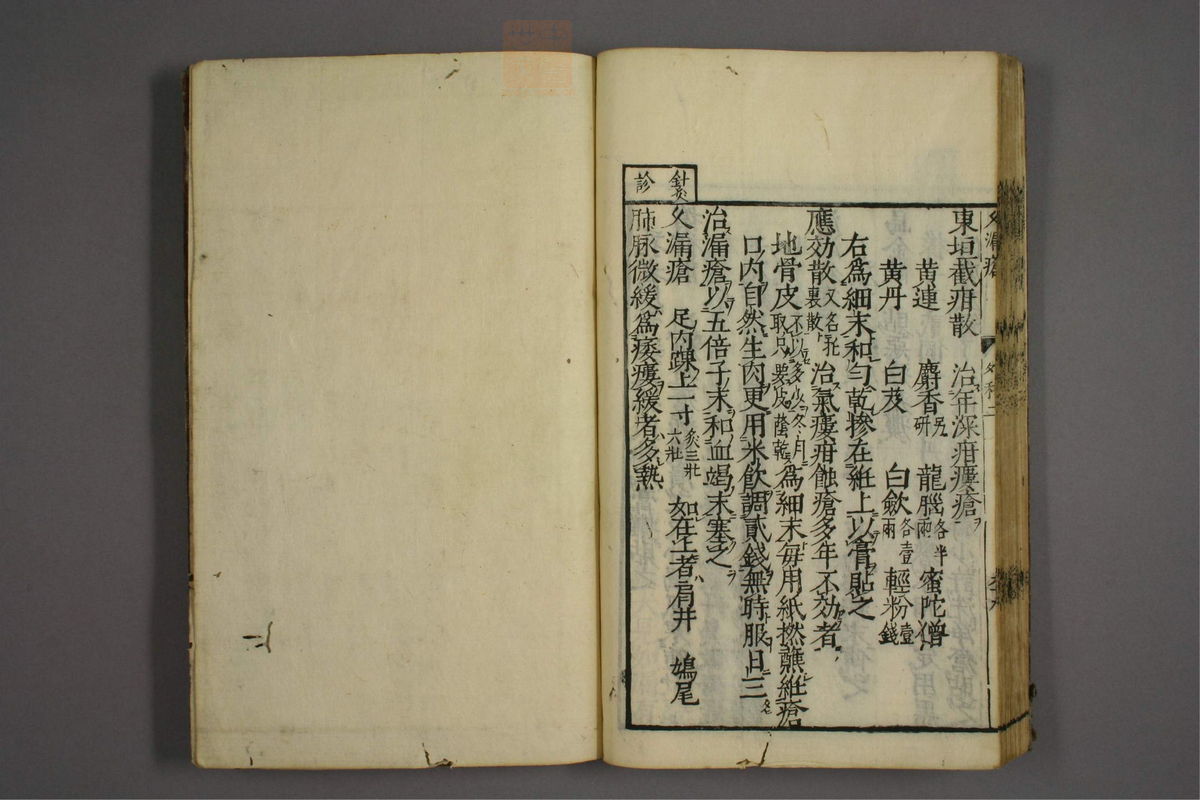 久漏瘡
東垣截疳散 治年深疳瘻瘡
黄連 麝香另研 龍腦各半兩 蜜陀僧
黄丹 白芨 白歛各壹兩 輕粉壹錢
右爲細末和勻乾摻在紝上以膏貼之
應効散又名托裏散 治氣瘻疳蝕瘡多年不効者
地骨皮不以多少冬月取只要皮蔭乾 爲細末每用紙撚蘸紝瘡
口内自然生肉更用米飲調貳錢無時服日三
治漏瘡以五倍子末和血竭末塞之
鍼灸
久漏瘡 足内踝上一寸灸三壯六壯 如在上者肩井 鳩尾
診
肺脉微緩爲痿瘻緩者多熱